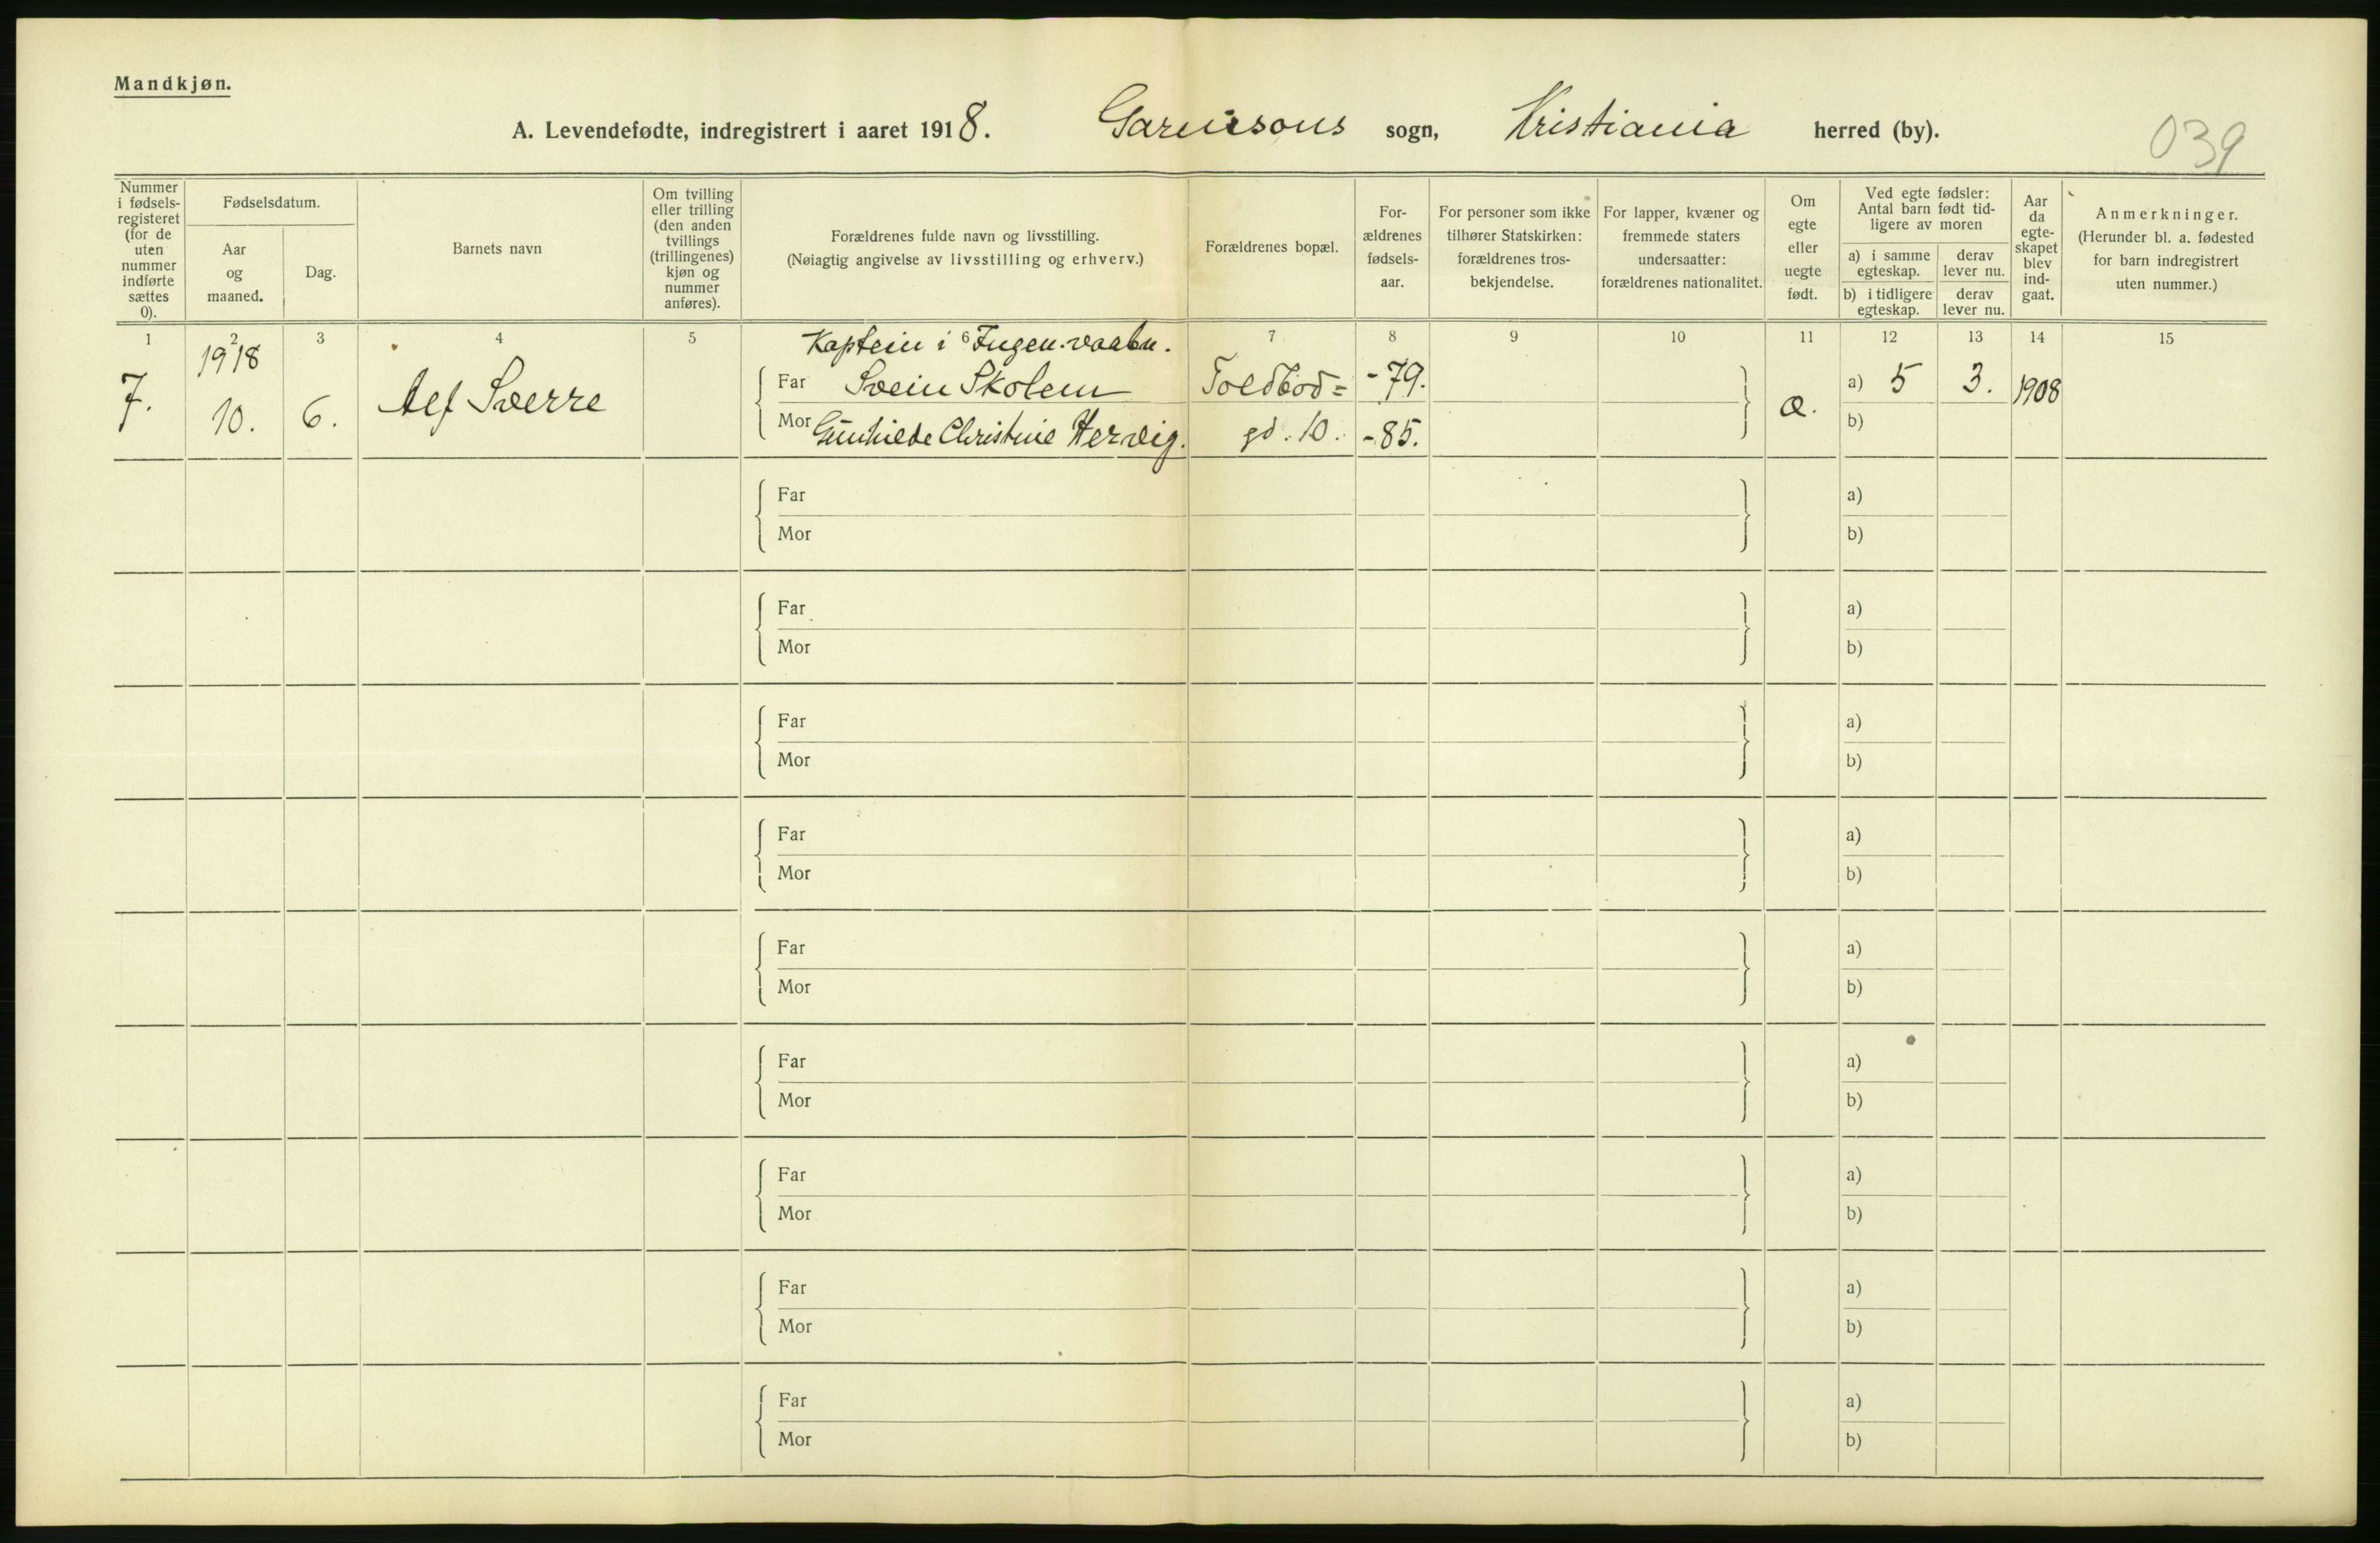 Mandkjøn.
A. Levendefødte, indregistrert i aaret 1918. Garnisons sogn, Kristiania herred (by).
039
Nummer i fødsels-registeret (for de uten nummer indførte sættes 0).
Fødselsdatum.
Aar og maaned.
Dag.
Barnets navn
Om tvilling eller trilling (den anden tvillings (trillingenes) kjøn og nummer anføres).
Forældrenes fulde navn og livsstilling.
(Nøiagtig angivelse av livsstilling og erhverv.)
Forældrenes bopæl.
For-ældrenes fødsels-aar.
For personer som ikke tilhører Statskirken: forældrenes tros-bekjendelse.
For lapper, kvæner og fremmede staters undersaatter: forældrenes nationalitet.
Om egte eller uegte født.
Ved egte fødsler: Antal barn født tid-ligere av moren
a) i samme egteskap.
derav lever nu.
b) i tidligere egteskap.
derav lever nu.
Aar da egte-skapet blev ind-gaat.
Anmerkninger.
(Herunder bl. a. fødested for barn indregistrert uten nummer.)
1 2 3 4 5 6 7 8 9 10 11 12 13 14 15
1918 Kaptein i Ingen.vaabn.
7. 10. 6. Alf Sverre
Far Svein Skolem Toldbod= -79. a) 5 3. 1908
Mor Gunhilde Christine Hervig. gd. 10. -85. æ. b)
Far a)
Mor b)
Far a)
Mor b)
Far a)
Mor b)
Far a)
Mor b)
Far a)
Mor b)
Far a)
Mor b)
Far a)
Mor b)
Far a)
Mor b)
Far a)
Mor b)